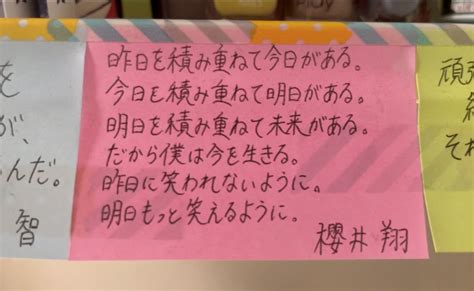 昨日を積み重ねて今日がある。
今日を積み重ねて明日がある。
明日を積み重ねて未来がある。
だから僕は今を生きる。
昨日に笑われないように。
明日もっと笑えるように。
櫻井 翔
を
が、
んだ。
智
頑
それ